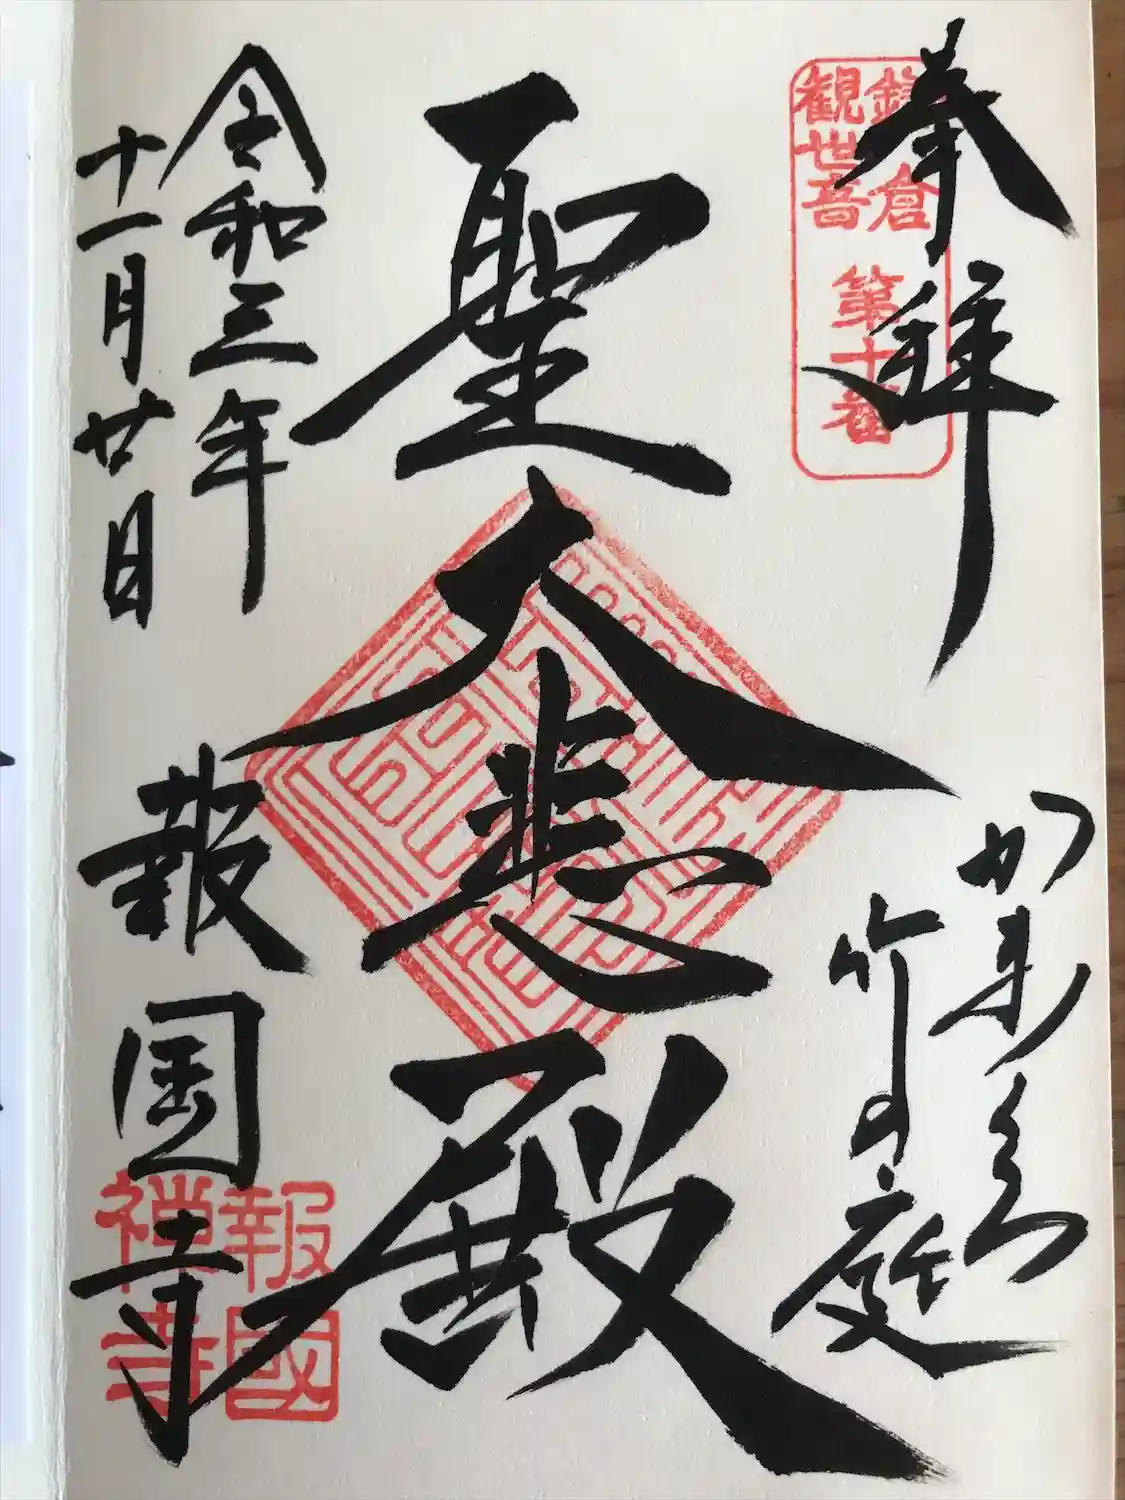 奉拝
鎌倉
観世音
第十番
かまくら
竹の庭
聖大悲殿
令和三年
十一月廿日
報国寺
報國
禅寺